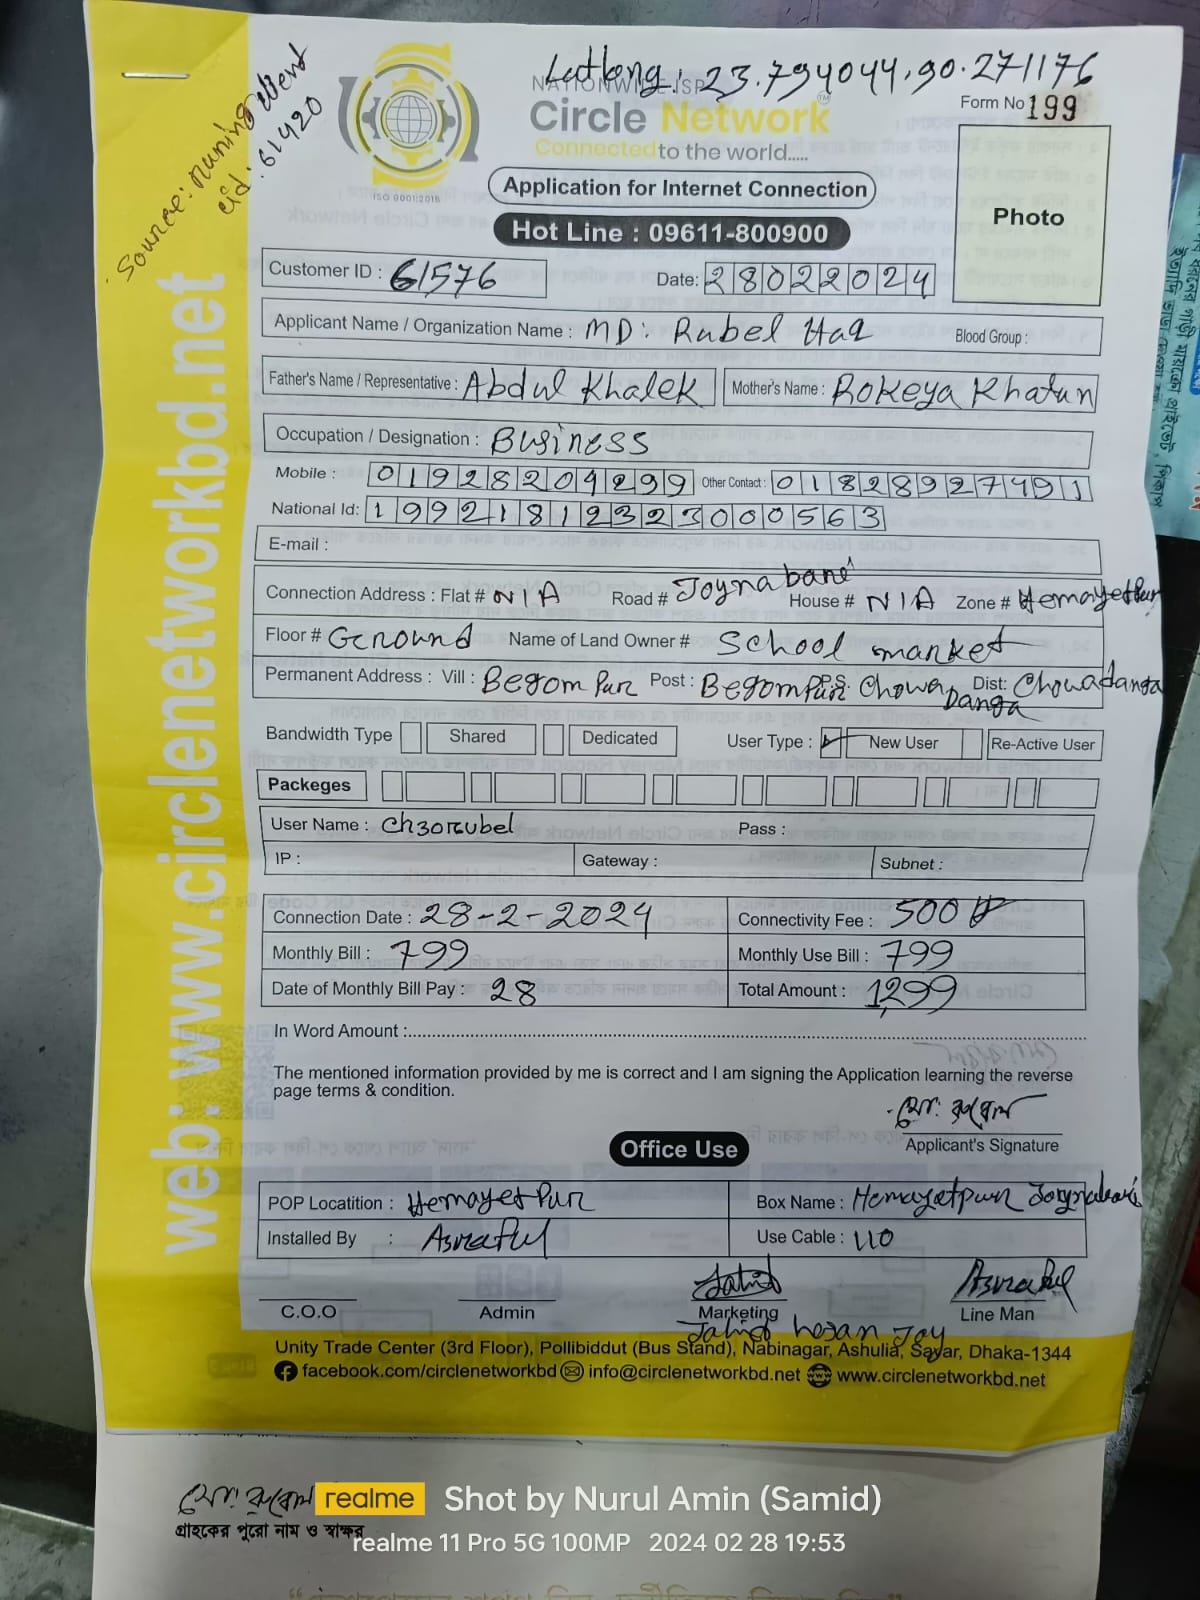 Source: running client
cid: 61420
Latlong: 23.794044,90.271176
NATIONWIDE ISP
Circle Network™
Connected to the world.....
ISO 9001:2015
Form No 199
Application for Internet Connection
Hot Line : 09611-800900
Photo
web: www.circlenetworkbd.net
Customer ID : 61576 Date: 28022024
Applicant Name / Organization Name : MD: Rubel Haq Blood Group :
Father's Name / Representative : Abdul Khalek Mother's Name : Rokeya Khatun
Occupation / Designation : Business
Mobile : 01928209299 Other Contact : 01828927491
National Id: 19921812323000563
E-mail :
Connection Address : Flat # N/A Road # Joynabari House # N/A Zone # Hemayetpur
Floor # Ground Name of Land Owner # School market
Permanent Address : Vill : Begompur Post : Begompur P.S. Chowadanga Dist: Chowadanga
Bandwidth Type Shared Dedicated User Type : New User Re-Active User
Packeges
User Name : Ch30rubel Pass :
IP : Gateway : Subnet :
Connection Date : 28-2-2024 Connectivity Fee : 500
Monthly Bill : 799 Monthly Use Bill : 799
Date of Monthly Bill Pay : 28 Total Amount : 1299
In Word Amount :
The mentioned information provided by me is correct and I am signing the Application learning the reverse
page terms & condition.
মো: রুবেল
Applicant's Signature
Office Use
POP Locatition : Hemayetpur Box Name : Hemayetpur Joynabari
Installed By : Asraful Use Cable : 110
Jahid Asraful
C.O.O Admin Marketing Line Man
Jahid hasan Joy
Unity Trade Center (3rd Floor), Pollibiddut (Bus Stand), Nabinagar, Ashulia, Savar, Dhaka-1344
facebook.com/circlenetworkbd info@circlenetworkbd.net www.circlenetworkbd.net
মো: রুবেল
গ্রাহকের পুরো নাম ও স্বাক্ষর
realme Shot by Nurul Amin (Samid)
realme 11 Pro 5G 100MP 2024 02 28 19:53